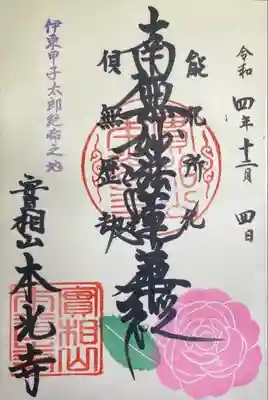 令和 四年 十二月 四日
能化所化
南無妙法蓮華經
倶無歴劫
伊東甲子太郎絶命之地
實相山 本光寺
實相山